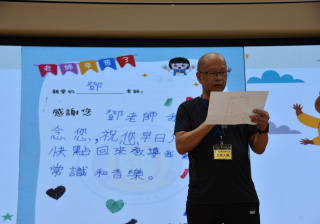 老師辛苦了
親愛的 鄧 老師:
感謝您 鄧老師
念您,祝您早日
快點回來教導我
常識和音樂。